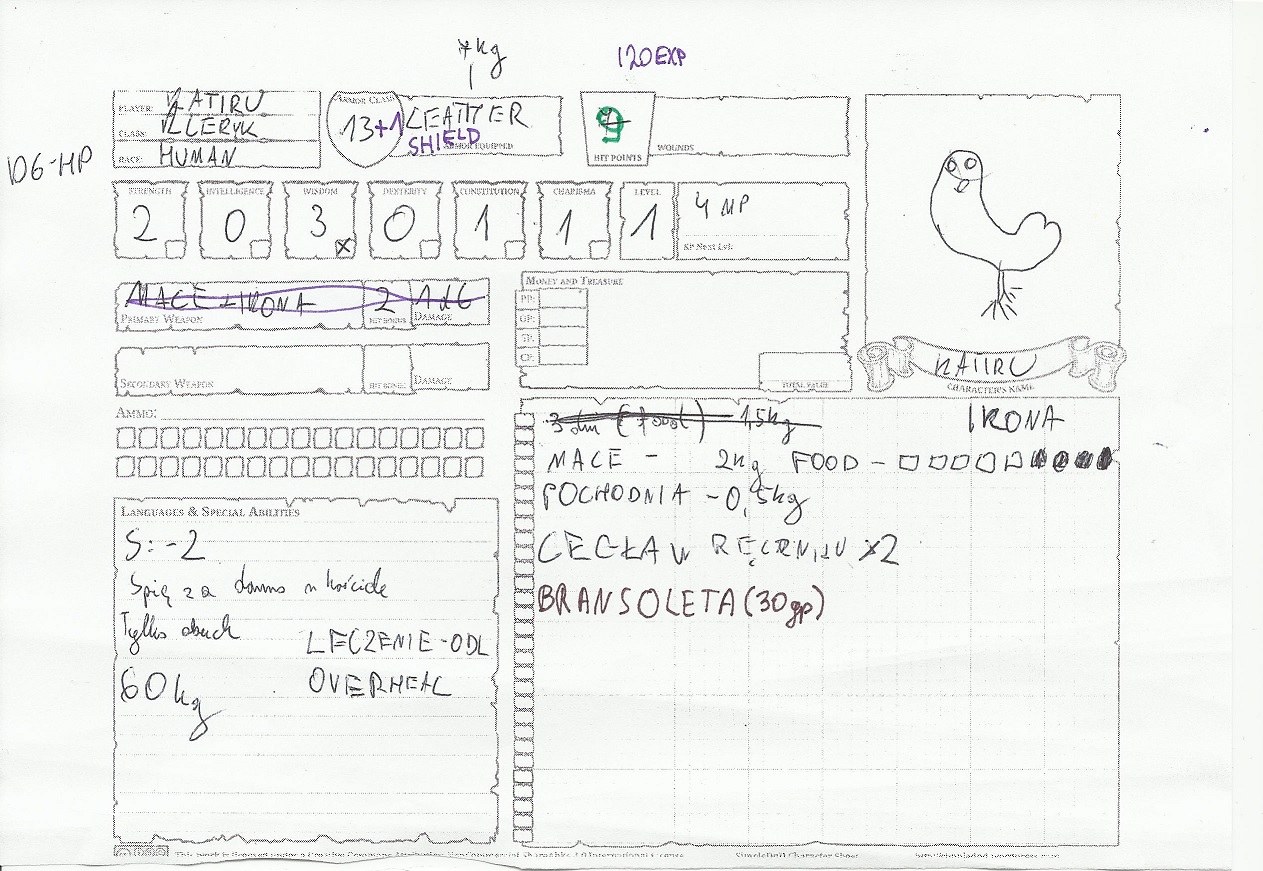 7kg
120EXP
PLAYER: KATIRU
CLASS: KLERYK
RACE: HUMAN
ARMOR CLASS
13+1
LEATHER
SHIELD
ARMOR EQUIPPED
9
HIT POINTS
WOUNDS
1D6-HP
STRENGTH
2
INTELLIGENCE
0
WISDOM
3
DEXTERITY
0
CONSTITUTION
1
CHARISMA
1
LEVEL
1
4 MP
XP Next Lvl:
MACE + IKONA 2 1d6
PRIMARY WEAPON HIT BONUS DAMAGE
SECONDARY WEAPON HIT BONUS DAMAGE
AMMO:
MONEY AND TREASURE
PP:
GP:
SP:
CP:
TOTAL VALUE
KATIRU
CHARACTER'S NAME
LANGUAGES & SPECIAL ABILITIES
S: -2
Śpię za darmo w kościele
Tylko obuch
LECZENIE-ODL
60kg
OVERHEAL
3 dni (food) - 1,5kg
IKONA
MACE - 2kg FOOD -
POCHODNIA - 0,5kg
CEGŁA W RĘCZNIKU x2
BRANSOLETA (30gp)